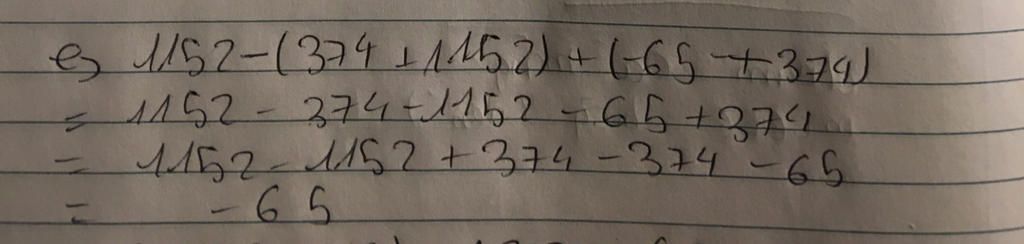 e) 1152 - (374 + 1152) + (-65 + 374)
= 1152 - 374 - 1152 - 65 + 374
= 1152 - 1152 + 374 - 374 - 65
= - 65